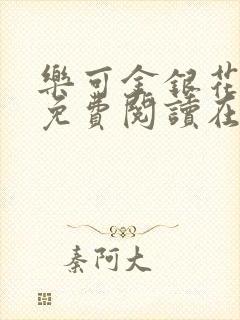 樂可金銀花
免費閱讀在
秦阿大